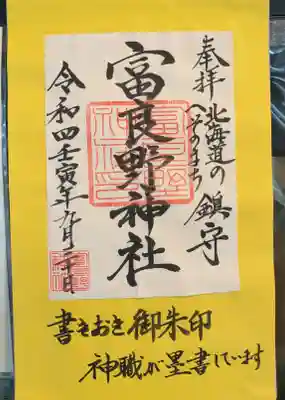 奉拝 北海道の鎮守
へそのまち
富良野神社
令和四壬寅年九月二十日
書きおき御朱印
神職が墨書しています